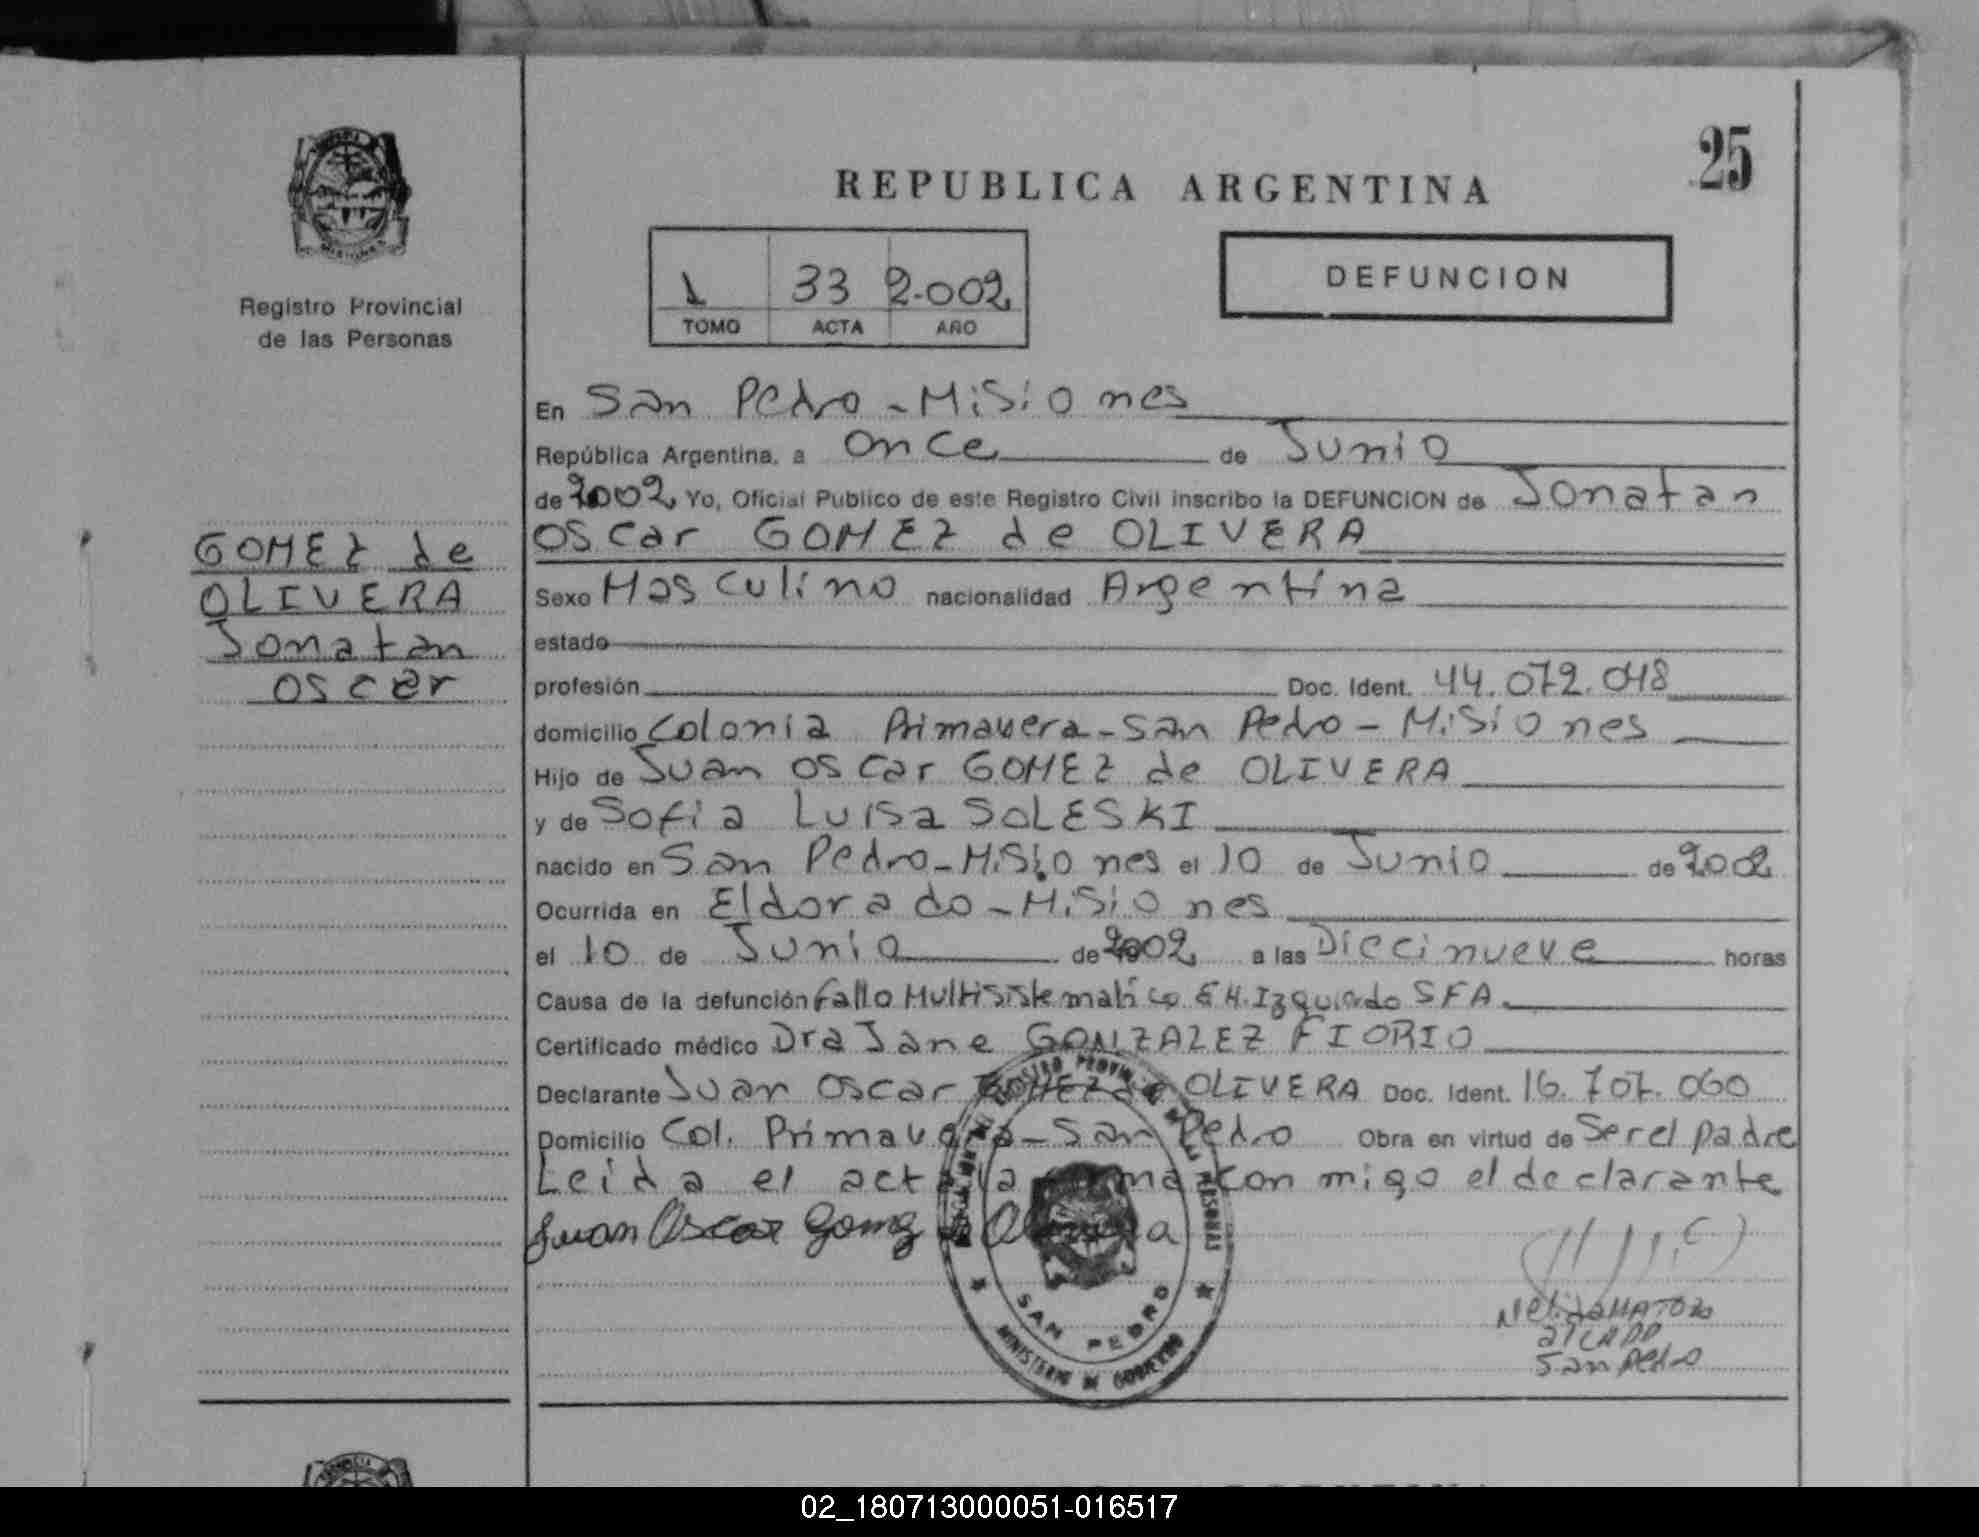 25
REPUBLICA ARGENTINA
1 33 2.002
TOMO ACTA AÑO
DEFUNCION
Registro Provincial
de las Personas
GOMEZ de
OLIVERA
Jonatan
oscar
En San Pedro - Misiones
República Argentina, a once de Junio
de 2002 Yo, Oficial Publico de este Registro Civil inscribo la DEFUNCION de Jonatan
oscar GOMEZ de OLIVERA
Sexo Masculino nacionalidad Argentina
estado
profesión Doc. Ident. 44.072.048
domicilio Colonia Primavera - San Pedro - Misiones
Hijo de Juan oscar GOMEZ de OLIVERA
y de Sofia Luisa SOLESKI
nacido en San Pedro - Misiones el 10 de Junio de 2002
Ocurrida en Eldorado - Misiones
el 10 de Junio de 2002 a las Diecinueve horas
Causa de la defunción Fallo Multisistematico Izquierdo SFA
Certificado médico Dra Jane GONZALEZ FIORIO
Declarante Juan oscar GOMEZ de OLIVERA Doc. Ident. 16.707.060
Domicilio Col. Primavera - San Pedro Obra en virtud de Ser el padre
Leida el acta la firma con migo el declarante
Juan Oscar Gomez de Olivera
SAN PEDRO
MINISTERIO DE GOBIERNO
Nelida MATOZO
San Pedro
02_180713000051-016517